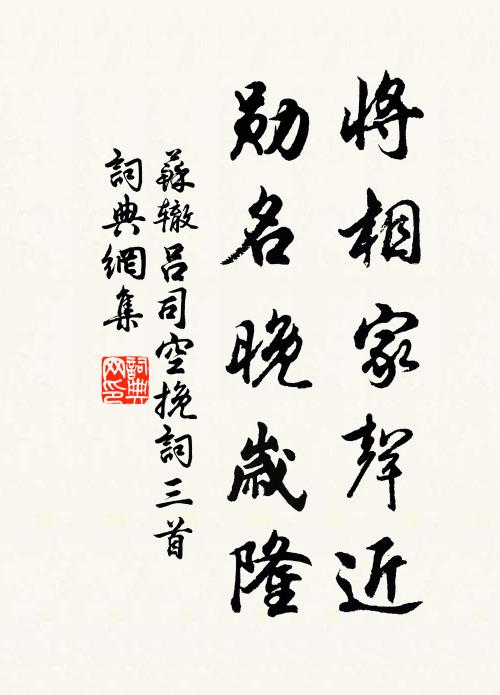 將相家聲近
勛名晚歲隆
蘇轍呂司空挽詞三首
詞典網集
詞典
网印